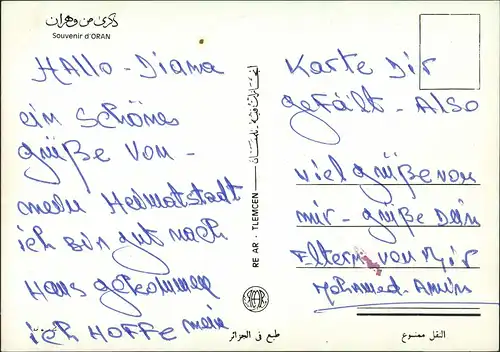 ذكرى من وهران
Souvenir d'ORAN
HALLO - Diana
ein schönes
grüße von -
mein Heimatstadt
ich bin gut nach
Haus gekommen
ich HOFFE mein
RE AR - TLEMCEN
طبع في الجزائر
Karte Dir
gefält - Also
viel grüße von
mir - grüße Dein
Eltern von Mir
Mohamed-Amin
النقل ممنوع